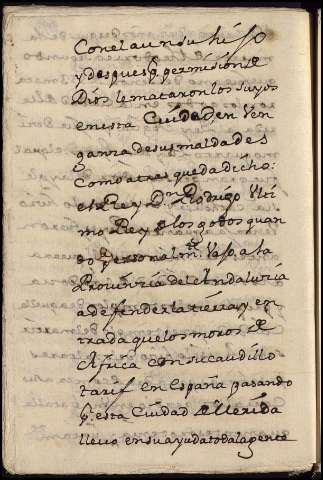 Con el aun su hijo
y despues q permision de
Dios le mataron los suyos
en esta Ciudad en Ven
ganza de sus maldades
como atras queda dicho:
el Rey Dn Rodrigo Ulti
mo Rey de los godos quan
do personalmte vaxo a la
Provinzia del Andaluzia
a defender la tierra y en
trada que los moros de
Africa con su caudillo
tarif en España pasando
pr esta Ciudad de Merida
llevo en su ayuda toda la gente